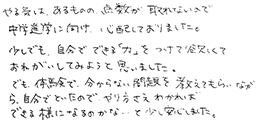 やる気は、あるものの、点数が取れないので
中学進学に向け、心配しておりました。
少しでも、自分でできる「力」をつけて欲しくて
おねがいしてみようと思いました。
でも、体験で、分からない問題を教えてもらいなが
ら、自分でといたので、やり方さえわかれば
できる様になるのかな…と少し安心しました。